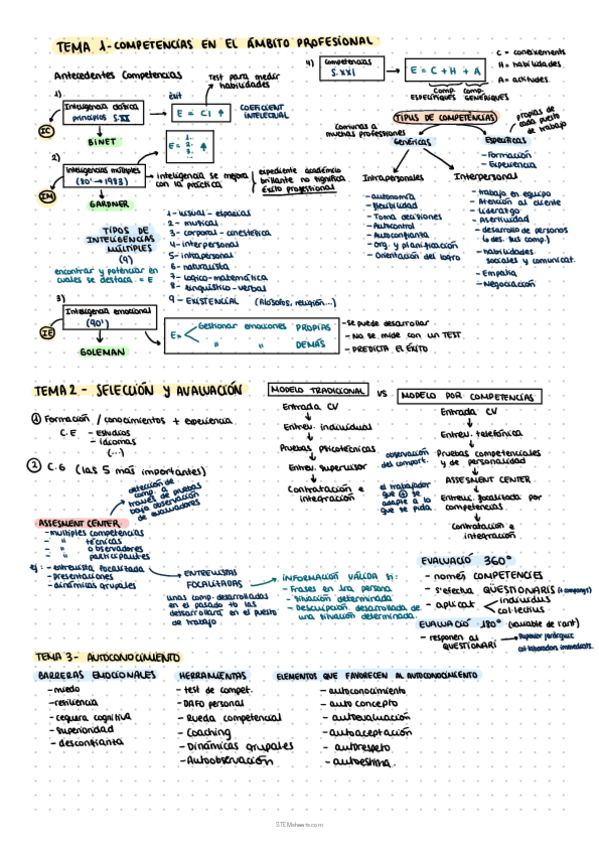 TEMA 1 - COMPETENCIAS EN EL ÁMBITO PROFESIONAL
Antecedentes Competencias
Test para medir
habilidades
4)
Competencias
S. XXI
E = C + H + A
C = coneixements
H = habilidades
A = actitudes
Comp.
ESPECÍFIQUES
comp.
GENÈRIQUES
1)
Inteligencia clásica
principios S.XX
IC
BINET
èxit
E = CI ↑
COEFICIENT
INTELECTUAL
E =
1.
2.
3.
2)
Inteligencias múltiples
(80' → 1983)
IM
GARDNER
inteligencia se mejora
con la práctica
expediente académico
brillante no significa
éxito profesional
TIPUS DE COMPETENCIAS
comunas a
muchas profesiones
Genéricas
Específicas
propias de
cada puesto
de trabajo
- Formación
- Experiencia
Intrapersonales
- autonomía
- flexibilidad
- Toma decisiones
- Autocontrol
- Autoconfianza
- Org. y planificación
- Orientación del logro
Interpersonal
- trabajo en equipo
- Atención al cliente
- Liderazgo
- Asertividad
- desarrollo de personas
(des. sus comp.)
- habilidades
sociales y comunicat.
- Empatía
- Negociación
TIPOS DE
INTELIGENCIAS
MÚLTIPLES
(9)
encontrar y potenciar en
cuales se destaca = E
1 - visual - espacial
2 - musical
3 - corporal - cinestética
4 - interpersonal
5 - intrapersonal
6 - naturalista
7 - lógico - matemática
8 - lingüístico - verbal
9 - EXISTENCIAL (filósofos, religión...)
3)
Inteligencia emocional
(90')
IE
GOLEMAN
E =
Gestionar emociones PROPIAS
" " DEMÁS
- Se puede desarrollar
- No se mide con un TEST
- PREDICTA EL ÉXITO
TEMA 2 - SELECCIÓN Y AVALUACIÓN
① Formación / conocimientos + experiencia
C.E - Estudios
- idiomas
(...)
② C.G (las 5 más importantes)
detección de
comp. a
través de pruebas
bajo observación
de evaluadores
ASSESMENT CENTER
- múltiples competencias
- " técnicas
- " observadores
- " participantes
ej: - entrevista focalizada
- presentaciones
- dinámicas grupales
ENTREVISTAS
FOCALITZADAS
unas comp. desarrolladas
en el pasado tb las
desarrollará en el puesto
de trabajo.
INFORMACIÓN VÁLIDA si:
- Frases en 1ra persona
- Situación determinada
- Descripción desarrollada de
una situación determinada.
MODELO TRADICIONAL
VS
MODELO POR COMPETENCIAS
Entrada CV
Entrev. individual
Pruebas psicotécnicas
Entrev. supervisor
Contratación e
integración
observación
del comport.
el trabajador
que
adapte a lo
que se pida.
Entrada CV
Entrev. telefónica
Pruebas competenciales
y de personalidad
ASSESMENT CENTER
Entrev. focalitzada por
competencias
Contratación e
integración
EVALUACIÓ 360°
- només COMPETÈNCIES
- s'efectua QÜESTIONARIS
- aplicat
individus
col·lectius
EVALUACIÓ 180° (variable de l'ant)
- responen al
QÜESTIONARI
Superior jeràrquic
col·laboradors immediats.
TEMA 3 - AUTOCONOCIMIENTO
BARRERAS EMOCIONALES
- miedo
- resiliencia
- ceguera cognitiva
- superioridad
- desconfianza
HERRAMIENTAS
- test de compet.
- DAFO personal
- Rueda competencial
- Coaching
- Dinámicas grupales
- Autoobservación
ELEMENTOS QUE FAVORECEN AL AUTOCONOCIMIENTO
- autoconocimiento
- auto concepto
- autoevaluación
- autoaceptación
- autorespeto
- autoestima.